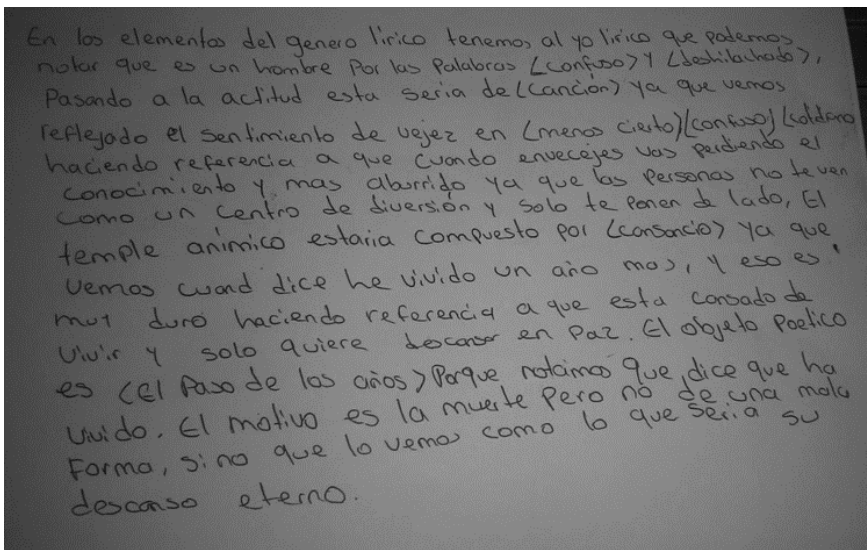 En los elementos del genero lirico tenemos al yo lirico que podemos
notar que es un hombre Por las Palabras <confuso> Y <deshilachado>,
Pasando a la actitud esta seria de <canción> ya que vemos
reflejado el sentimiento de vejez en <menos cierto> <confuso>
haciendo referencia a que cuando envecejes vas perdiendo el
conocimiento y mas aburrido ya que las Personas no te ven
como un centro de diversión y solo te Ponen de lado, El
temple anímico estaria compuesto por <cansancio> ya que
vemos cuand dice he vivido un año mas, Y eso es
muy duro haciendo referencia a que esta cansado de
vivir y solo quiere descansar en Paz. El objeto Poetico
es <El Paso de los años> Porque notamos que dice que ha
vivido. El motivo es la muerte Pero no de una mala
Forma, si no que lo vemos como lo que seria su
descanso eterno.